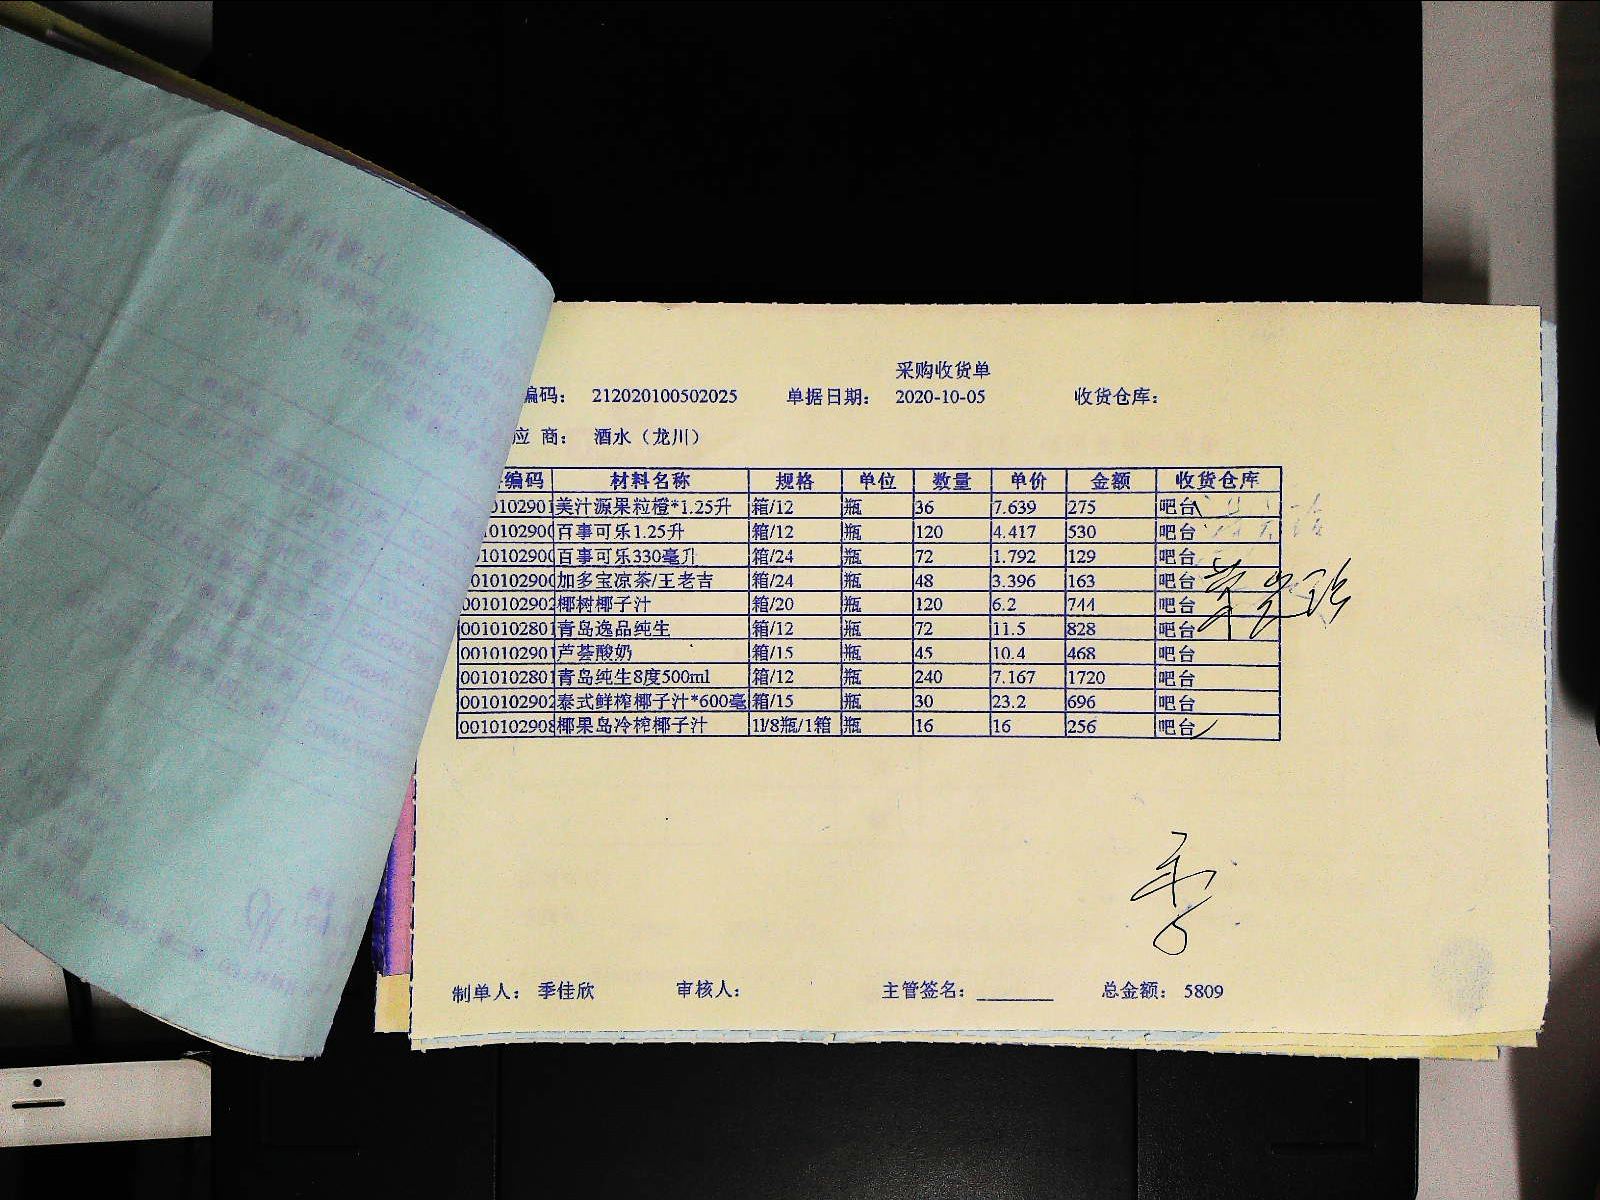 采购收货单
编码： 212020100502025 单据日期： 2020-10-05 收货仓库：
应 商： 酒水（龙川）
编码 材料名称 规格 单位 数量 单价 金额 收货仓库
0102901 美汁源果粒橙*1.25升 箱/12 瓶 36 7.639 275 吧台
0102900 百事可乐1.25升 箱/12 瓶 120 4.417 530 吧台
0102900 百事可乐330毫升 箱/24 瓶 72 1.792 129 吧台
010102900 加多宝凉茶/王老吉 箱/24 瓶 48 3.396 163 吧台
0010102902 椰树椰子汁 箱/20 瓶 120 6.2 744 吧台
0010102801 青岛逸品纯生 箱/12 瓶 72 11.5 828 吧台
0010102901 芦荟酸奶 箱/15 瓶 45 10.4 468 吧台
0010102801 青岛纯生8度500ml 箱/12 瓶 240 7.167 1720 吧台
0010102902 泰式鲜榨椰子汁*600毫 箱/15 瓶 30 23.2 696 吧台
0010102908 椰果岛冷榨椰子汁 1l/8瓶/1箱 瓶 16 16 256 吧台
季
制单人： 季佳欣 审核人： 主管签名： 总金额： 5809